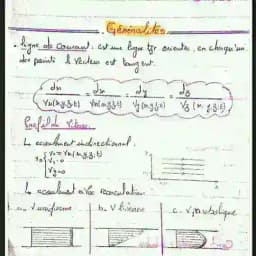 Généralités
• ligne de courant : est une ligne orientée, en chaque un
des points le vecteur est tangent.
dx / Vx(x,y,z,t) = dy / Vy(x,y,z,t) = dz / Vz(x,y,z,t)
Profil de vitesse
L ecoulement unidirectionnel :
Vx = Vx(x,y,z,t)
Vy = 0
Vz = 0
L ecoulement avec
a. V uniforme b. V linéaire c. V parabolique